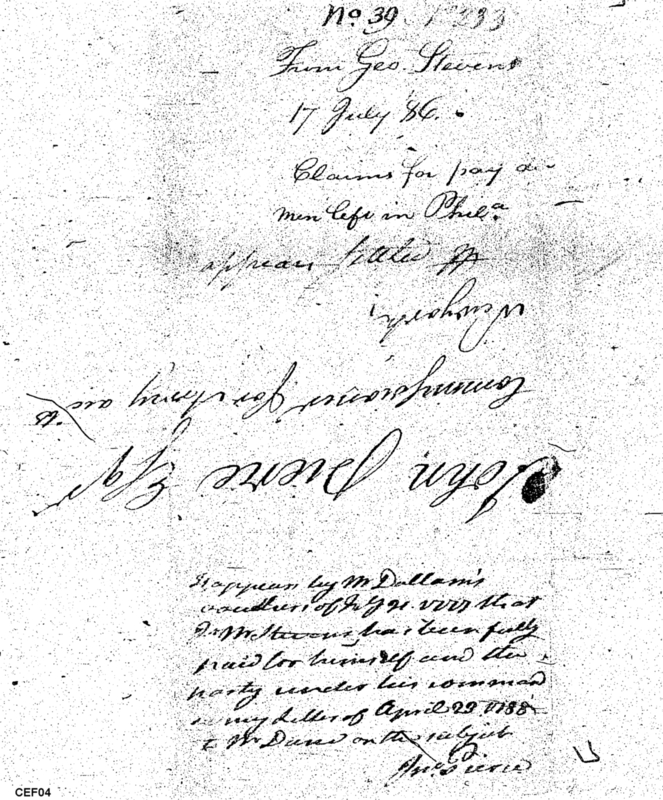 No. 39 No 333
From Geo. Stevens
17 July 86.
Claims for pay &
men left in Phila
appears settled
Newyork
Commissioner for Army
John Pierce Esqr
It appears by Mr Dallam's
vouchers of that
Mr Stevens has been fully
paid for himself and the
party under his command
my letter of April 29 1788
to Mr on the subject
Jno Pierce
CEF04